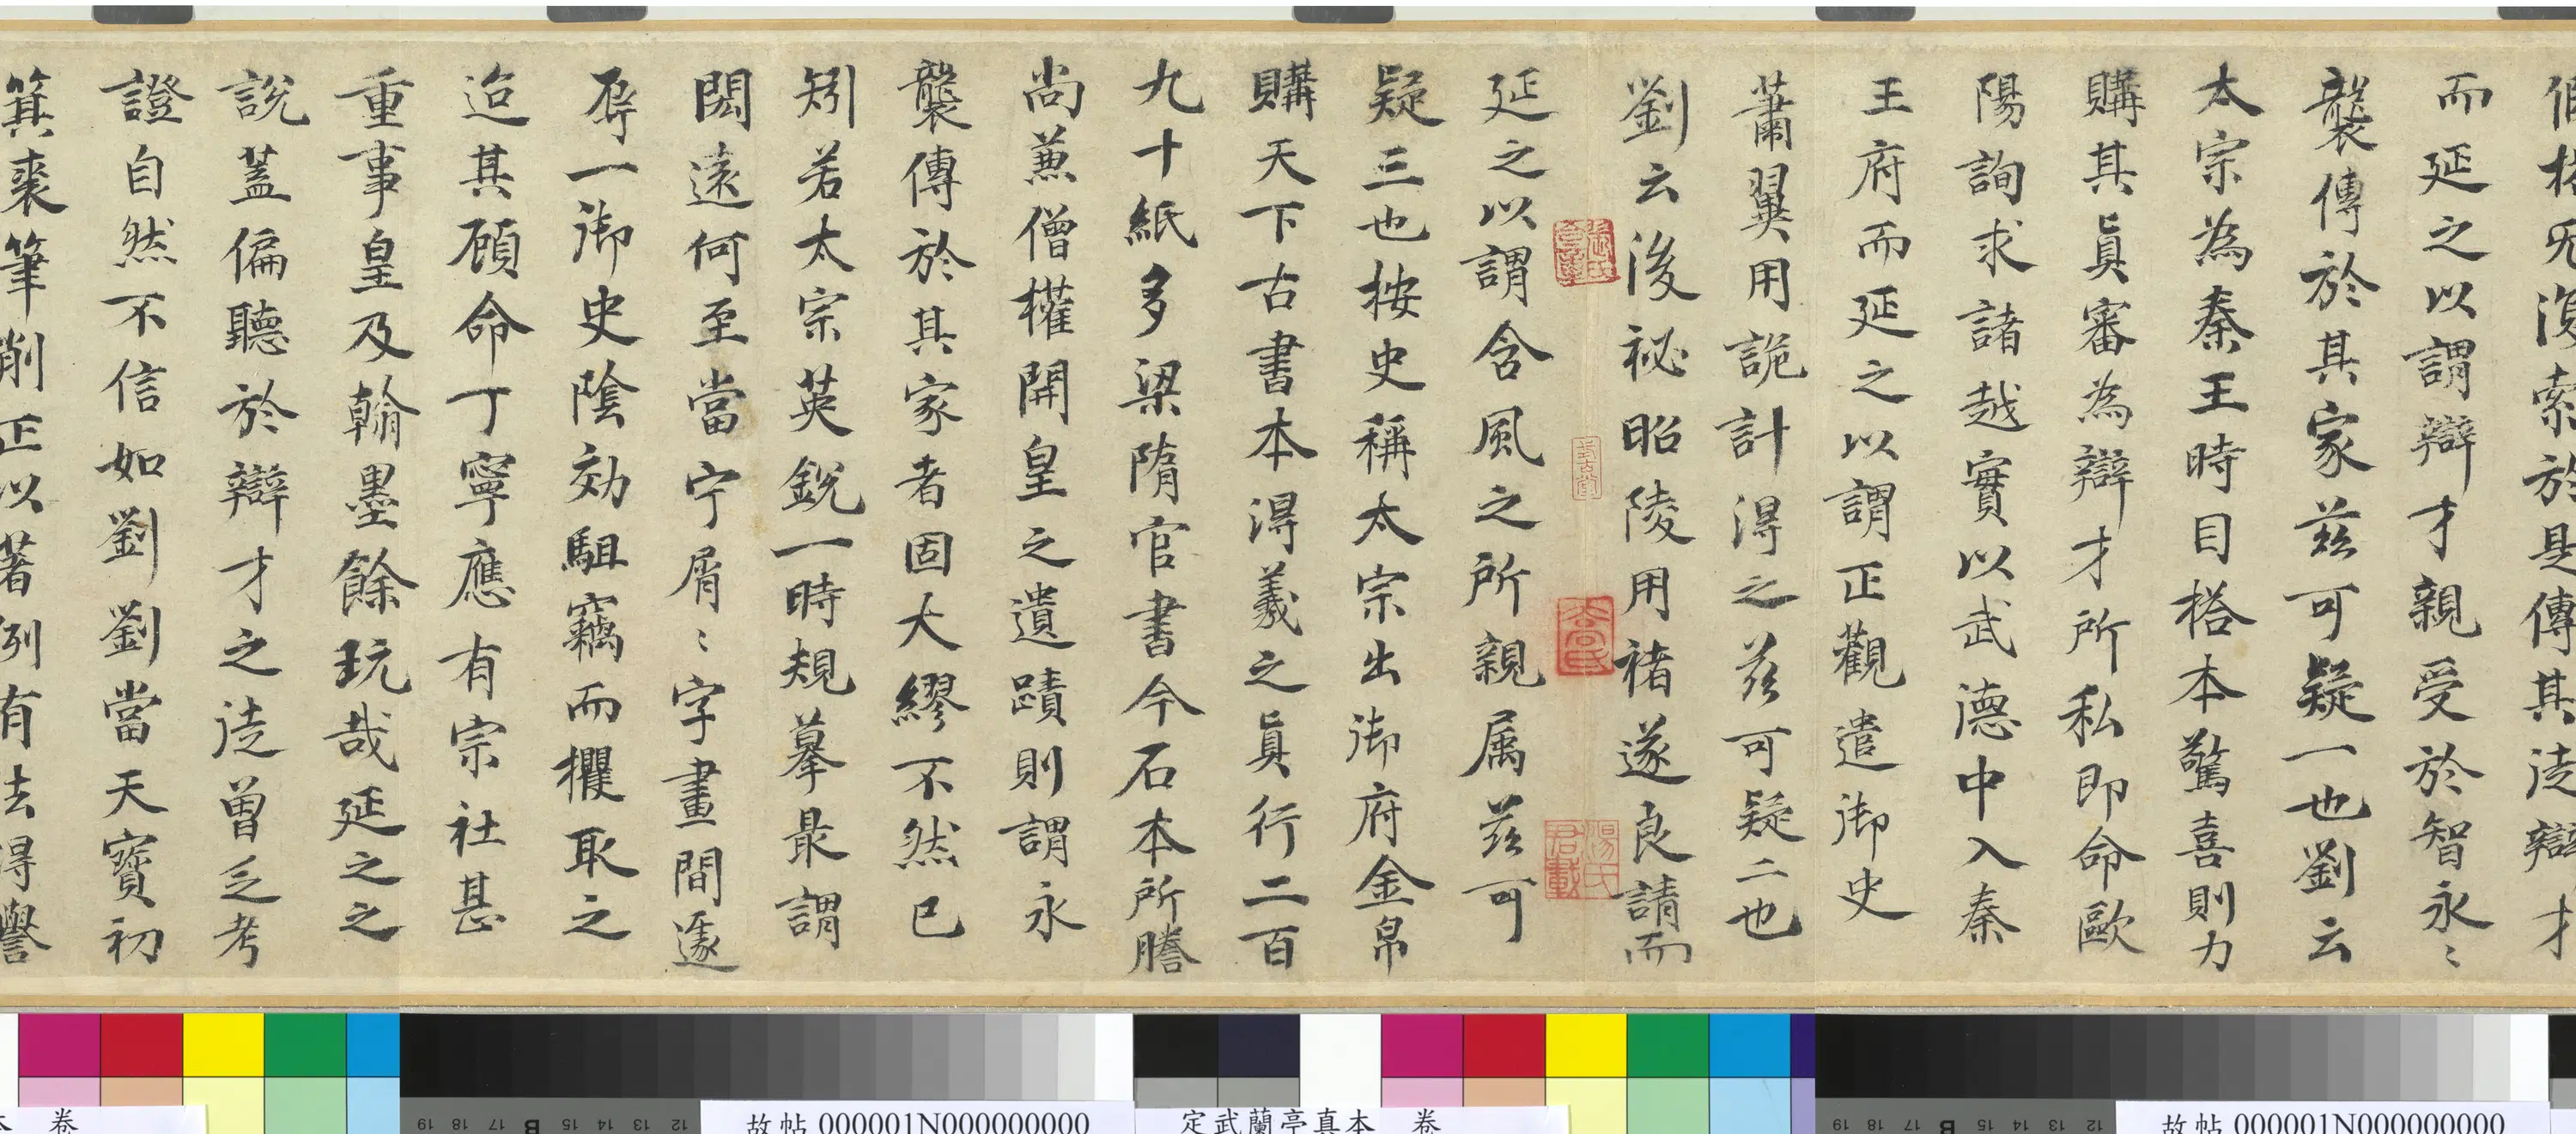 脩 復索於是傳其徒辯才
而延之以謂辯才親受於智永〻
襲傳於其家茲可疑一也劉云
太宗為秦王時目搭本驚喜則力
購其真審為辯才所私即命歐
陽詢求諸越實以武德中入秦
王府而延之以謂正觀遣御史
蕭翼用詭計得之茲可疑二也
劉云後祕昭陵用褚遂良請而
延之以謂含風之所親属茲可
疑三也按史稱太宗出御府金帛
購天下古書本得羲之真行二百
九十紙多梁隋官書今石本所謄
尚蒹僧權開皇之遺蹟則謂永
襲傳於其家者固大繆不然已
矧若太宗英銳一時規摹最謂
閎遠何至當宁屑〻字畫間遽
辱一御史陰効駔竊而攫取之
迨其顧命丁寧應有宗社甚
重事皇及翰墨餘玩哉延之之
說蓋偏聽於辯才之徒曾乏考
證自然不信如劉劉當天寶初
箕裘筆削正以著例有法得譽
故帖 000001N000000000
定武蘭亭真本 卷
故帖 000001N000000000
本 卷